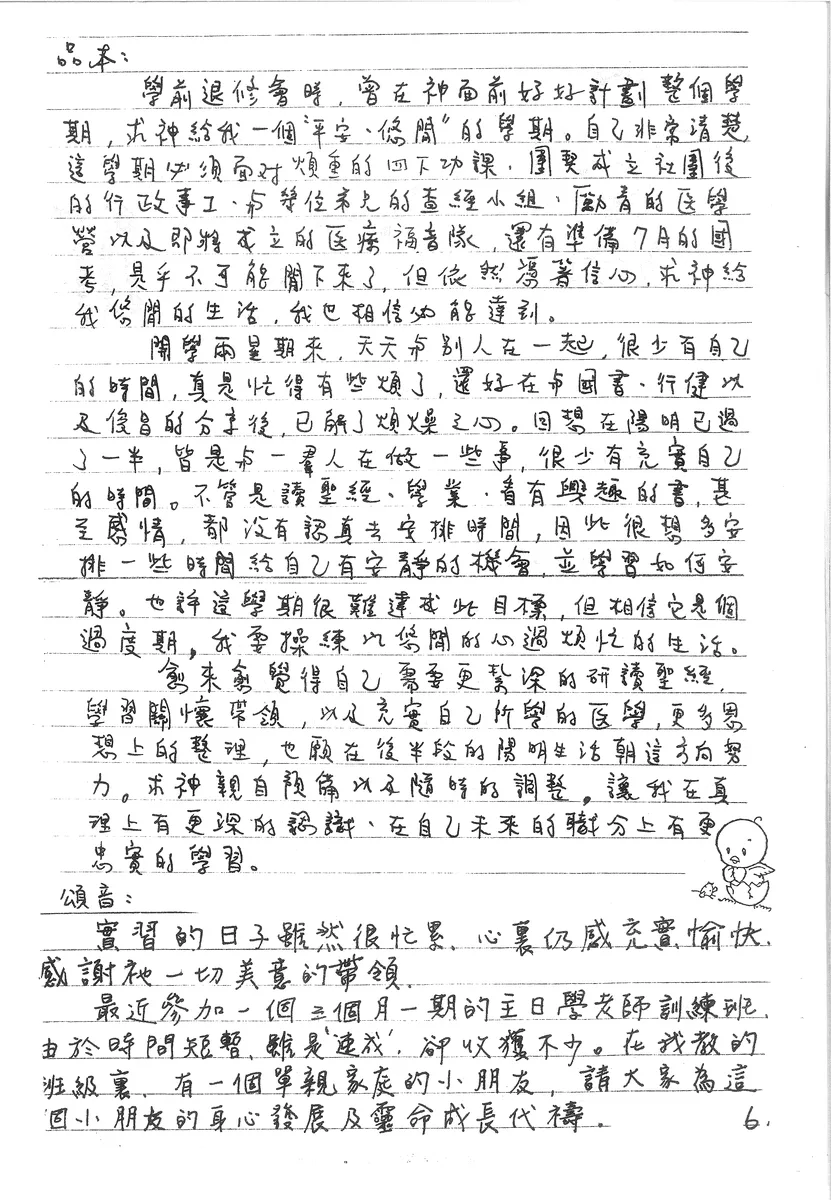 品本：
學前退修會時，曾在神面前好好計劃整個學
期，求神給我一個“平安、悠閒”的學期。自己非常清楚，
這學期必須面對煩重的四下功課、團契成立社團後
的行政事工、与幾位弟兄的查經小組、勵青的医學
營以及即將成立的医療福音隊，還有準備7月的國
考，是乎不可能閒下來了，但依然憑著信心，求神給
我悠閒的生活，我也相信必能達到。
開學兩星期來，天天与別人在一起，很少有自己
的時間，真是忙得有些煩了，還好在与國書、行健以
及俊旨的分享後，已解了煩燥之心。回想在陽明已過
了一半，皆是与一羣人在做一些事，很少有充實自己
的時間。不管是讀聖經、學業、看有興趣的書，甚
至感情，都沒有認真去安排時間，因此很想多安
排一些時間給自己有安靜的機會，並學習如何安
靜。也許這學期很難達成此目標，但相信它是個
過度期，我要操練以悠閒的心過煩忙的生活。
愈來愈覺得自己需要更紮深的研讀聖經，
學習關懷帶領，以及充實自己所學的医學，更多思
想上的整理，也願在後半段的陽明生活朝這方向努
力。求神親自預備以及隨時的調整。讓我在真
理上有更深的認識、在自己未來的職分上有更
忠實的學習。
頌音：
實習的日子雖然很忙累，心裏仍感充實愉快，
感謝祂一切美意的帶領．
最近參加一個三個月一期的主日學老師訓練班，
由於時間短暫，雖是‘速成’，卻收獲不少。在我教的
班級裏，有一個單親家庭的小朋友，請大家為這
個小朋友的身心發展及靈命成長代禱．
6.